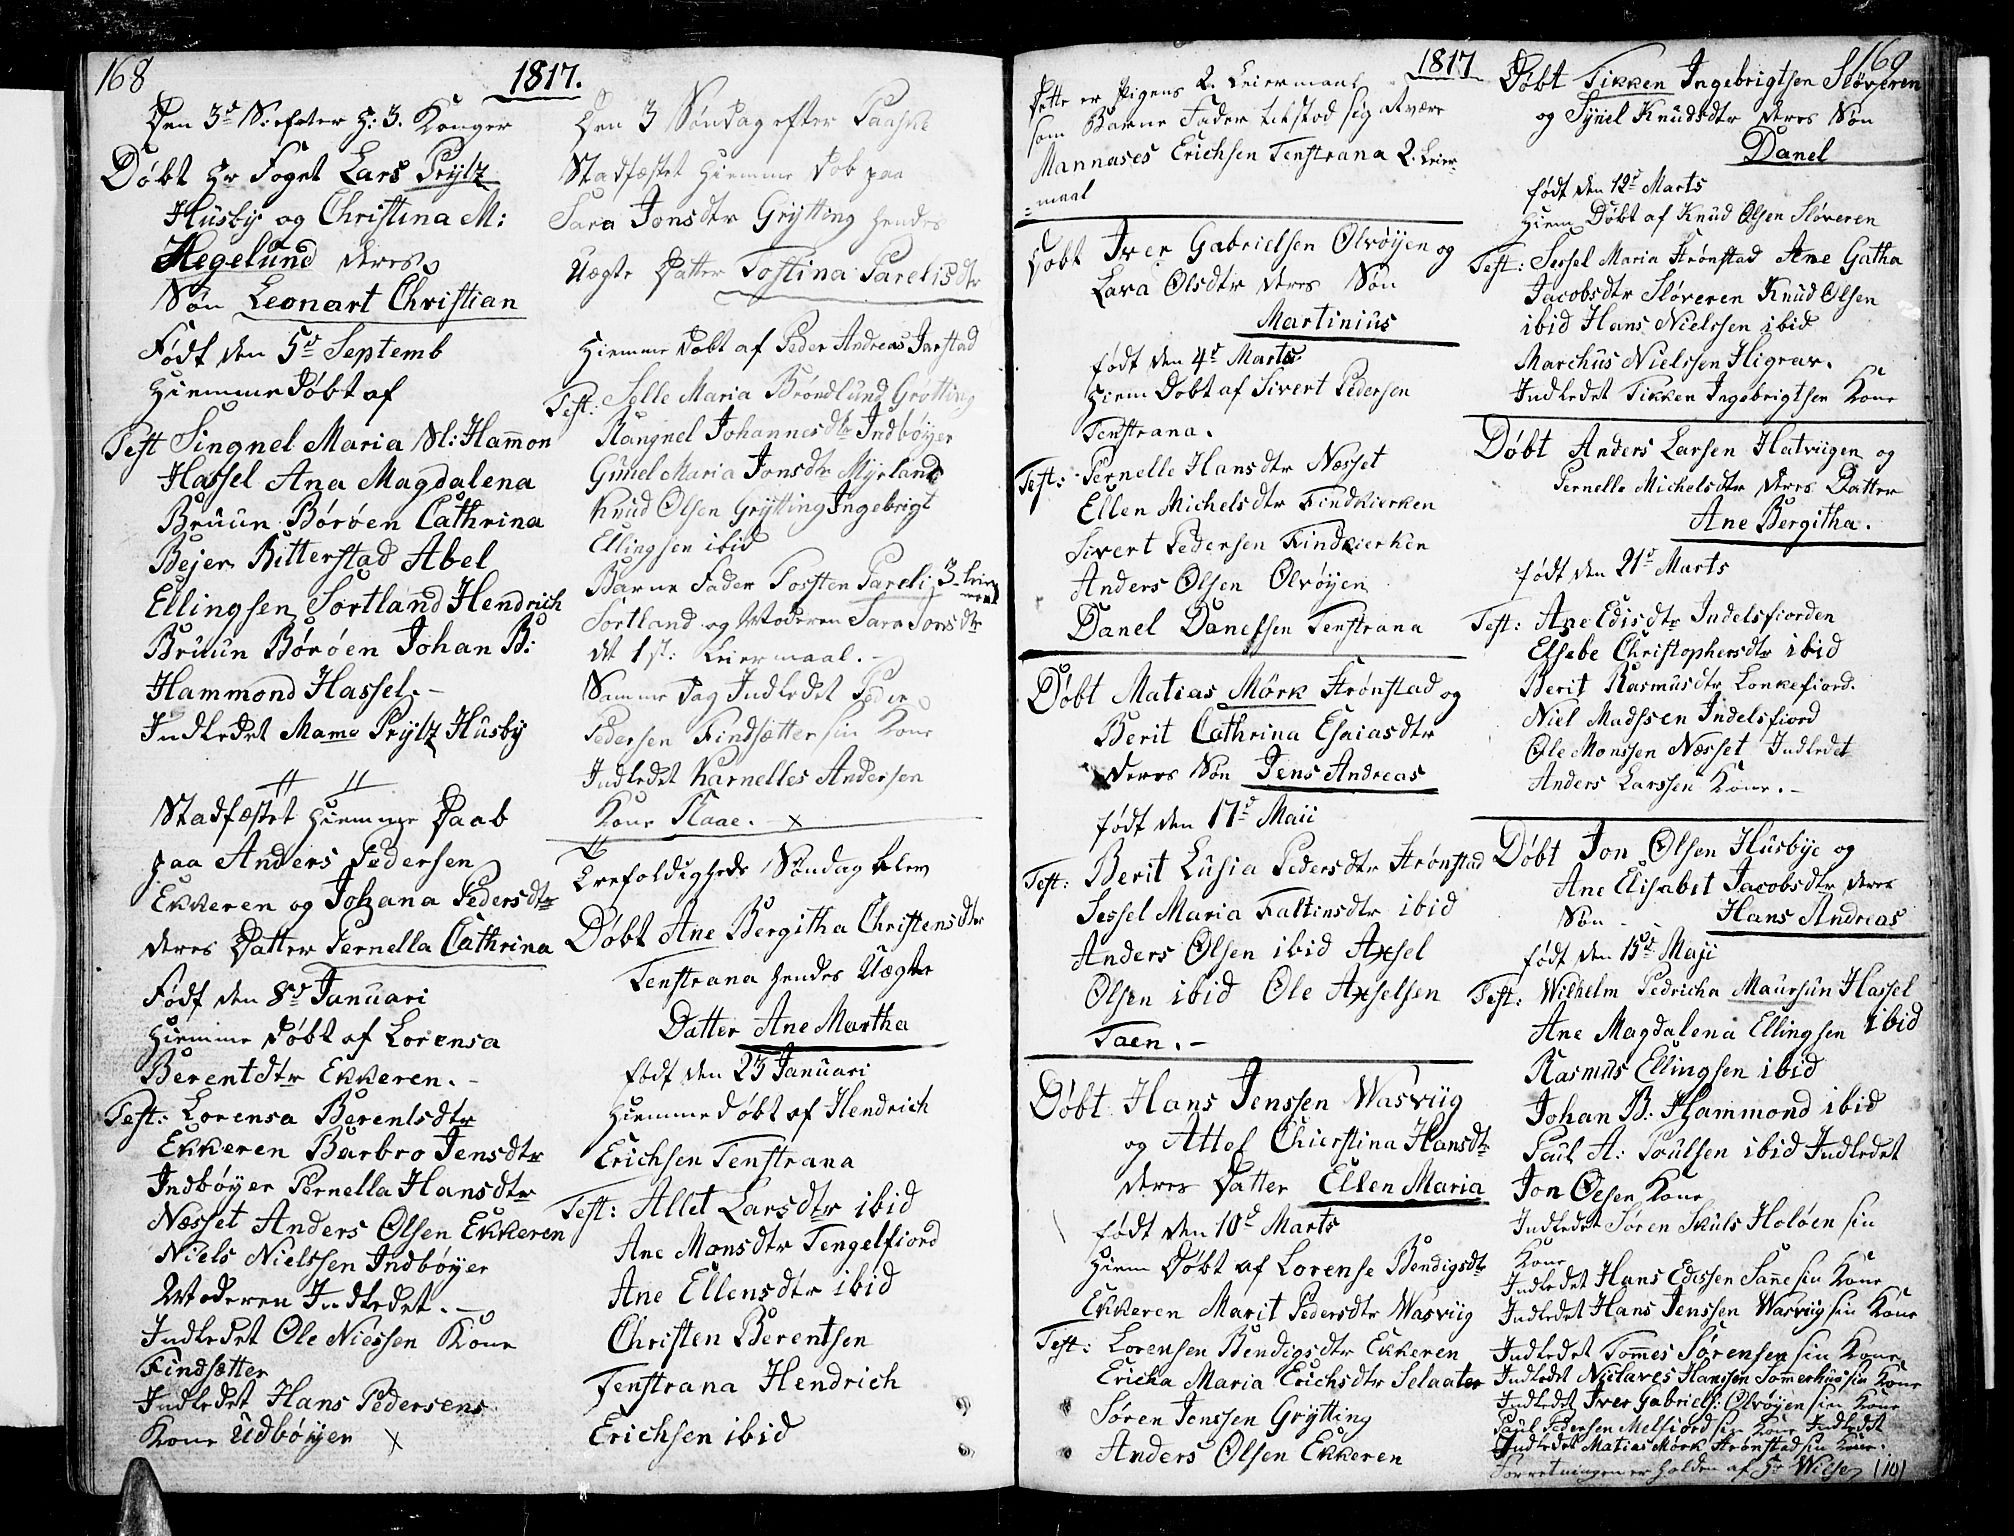 168
1817.
Den 3d S: efter H: 3. Konger
Døbt Hr Foget Lars Prÿtz
Husby og Christina M:
Hegelund deres
Søn Leonart Christian
Født den 5d Septemb
Hiemmedøbt af
Test Singnel Maria Sl: Hamon
Hassel Ana Magdalena
Bruun Børøen Cathrina
Bejer Ritterstad Abel
Ellingsen Sortland Hendrich
Bruun Børøen Johan B:
Hammond Hassel. -
Indledet Mame Prÿtz Husby
Stadfæstet Hiemme Daab
paa Anders Pedersen
Ekkeren og Johana Pedersdtr
deres Datter Pernella Cathrina
Født den 8d Januari
Hiemme døbt af Lorensa
Berentdtr Ekkeren. -
Test: Lorensa Berentsdtr
Ekkeren Barbro Jensdtr
Indbøyer Pernella Hansdtr
Næsset Anders Olsen Ekkeren
Niels Nielssen Indbøyer
Moderen Indledet. -
Indledet Ole Nielssen Kone
Findsætter
Indledet Hans Pedersens
Kone Udbøyen x
Den 3 Søndag efter Paaske
Stadfæstet Hiemme Dob paa
Sara Jonsdtr Grÿtting hendes
Uægte Datter Tostina Parelisdtr
Hiemme Dobt af Peder Andreas Jarstad
Test: Sille Maria Brøndlund Grøtting
Rangnel Johannesdtr Indbøyer
Gunel Maria Jonsdtr Myrland
Knud Olsen Grÿtting Ingebrigt
Ellingsen ibid
Barne Fader Tosten Pareli 3. Leiermaal
Sortland og Moderen Sara Jonsdtr
det 1st: Leiermaal. -
Samme dag Indledet Peder
Pedersen Findsætter sin Kone
Indledet Karnelles Andersen
Kone Flaae. - x
Trefoldigheds Søndag blev
Døbt Ane Bergitha Christensdtr
Tenstrana hendes Uægte
Datter Ane Martha
født den 23 Januari
Hiemmedøbt af Hendrich
Erichsen Tenstrana
Test: Allet Larsdtr ibid
Ane Monsdtr Tengelfiord
Ane Ellensdtr ibid
Christen Berentsen
Tenstrana Hendrich
Erichsen ibid
1817
169
Dette er Pigens 2. Leiermaal
som Barne Fader tilstod sig at være
Mannases Erichsen Tenstrana 2. Leier
=maal
Døbt Iver Gabrielsen Olvøyen og
Lava Olsdtr deres Søn
Martinius
født den 4d Marts
Hiem Døbt af Sivert Pedersen
Tenstrana.
Test: Pernelle Hansdtr Næsset
Ellen Michelsdtr Findkierken
Sivert Pedersen Findkierken
Anders Olsen Olvøyen
Danel Danelsen Tenstrana
Døbt Matias Mörk Frønstad og
Berit Cathrina Esaiasdtr
deres Søn Jens Andreas
født den 17d Maii
Test: Berit Lusia Pedersdtr Frønstad
Sessel Maria Faltinsdtr ibid
Anders Olsen ibid Axsel
Olsen ibid Ole Axselsen
Taen. -
Døbt Hans Jenssen Wasviig
og Attol Chierstina Hansdtr
deres Datter Ellen Maria
født den 10d Marts
Hiem Døbt af Lorense Bendigsdtr
Ekkeren Marit Pedersdtr Wasviig
Test: Lorensen Bendigsdtr Ekkeren
Ericha Maria Erichsdtr Selaater
Søren Jenssen Grÿtting
Anders Olsen Ekkeren
Døbt Tikken Ingebrigtsen Sløveren
og Synel Knudsdtr deres Søn
Danel
født den 12d Marts
Hiem Døbt af Knud Olsen Sløveren
Test: Sessel Maria Frønstad Ane Gatha
Jacobsdtr Sløveren Knud Olsen
ibid Hans Nielssen ibid
Marchus Nielssen Higrav.
Indledet Tikken Ingebrigtsen Kone
Døbt Anders Larsen Hatviigen og
Pernelle Michelsdtr deres Datter
Ane Bergitha.
født den 21d Marts
Test: Ane Edisdtr Indelsfiorden
Elsebe Christophersdtr ibid
Berit Rasmusdtr Lonkefiord.
Niel Madssen Indelsfiord
Ole Monssen Næsset Indledet
Anders Larssen Kone. -
Døbt Jon Olsen Husbye og
Ane Elisabet Jacobsdtr deres
Søn - Hans Andreas
født den 15d Maji
Test: Wilhelm Fedricha Maursun Hassel
Ane Magdalena Ellingsen ibid
Rasmus Ellingsen ibid
Johan B. Hammond ibid
Paul A: Poulsen ibid Indledet
Jon Olsen Kone
Indledet Søren Skuls Holøen sin
Kone
Indledet Hans Edissen Sane sin Kone
Indledet Hans Jenssen Wasviig sin Kone
Indledet Tomes Sørensen sin Kone
Indledet Niclaves Hanssen Somerhus sin Kone
Indledet Iver Gabriels: Olvøyen sin Kone
Paul Pedersen Melfiord sin Kone Indledet
Indledet Matias Mörk Frønstad sin Kone.
Forretningen er holden af Hr Wilse (10)